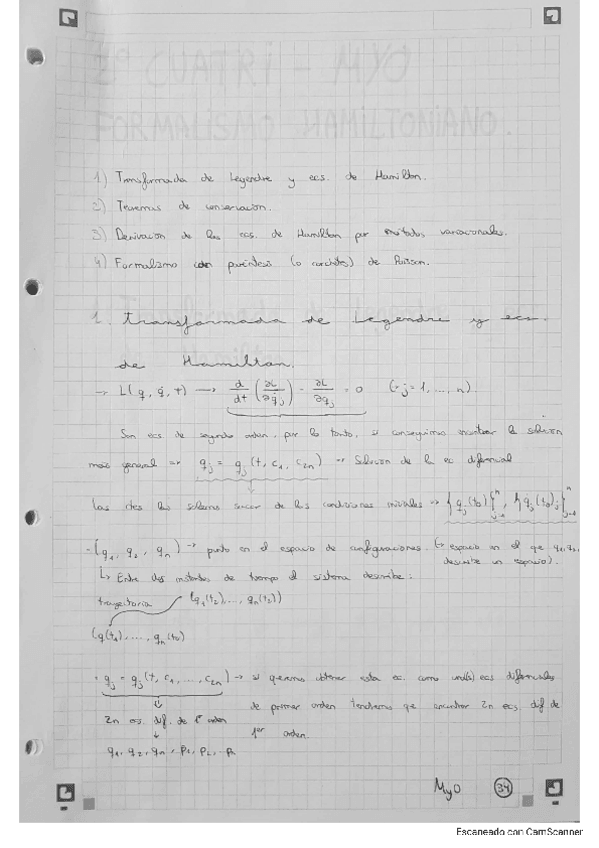 2º CUATRI - MYO
FORMALISMO HAMILTONIANO.
1) Transformada de Legendre y ecs. de Hamilton.
2) Teoremas de conservación.
3) Derivación de las ecs. de Hamilton por métodos variacionales.
4) Formalismo con paréntesis (o corchetes) de Poisson.
1. Transformada de Legendre y ecs.
de Hamilton.
→ L(q, q̇, t) → d/dt (∂L/∂q̇j) - ∂L/∂qj = 0 (j = 1, ..., n).
Son ecs de segundo orden, por lo tanto, si conseguimos encontrar la solución
más general ⇒ qj = qj(t, c1, c2n) → Solución de la ec diferencial
Las ctes las solemos sacar de las condiciones iniciales → {qj(t0)}ⁿj=1, {q̇j(t0)}ⁿj=1
- (q1, q2, qn) → punto en el espacio de configuraciones. (→ espacio en el que q1, q2,
describe un espacio).
↳ Entre dos instantes de tiempo el sistema describe:
trayectoria (q1(t2), ..., qn(t2))
(q(t1), ..., qn(t1))
· qj = qj(t, c1, ..., c2n) → si queremos obtener esta ec. como ecs diferenciales
de primer orden tendremos que encontrar 2n ecs. dif de
2n ecs. dif. de 1er orden
1er orden.
q1, q2, qn, p1, p2,
MyO 34
Escaneado con CamScanner